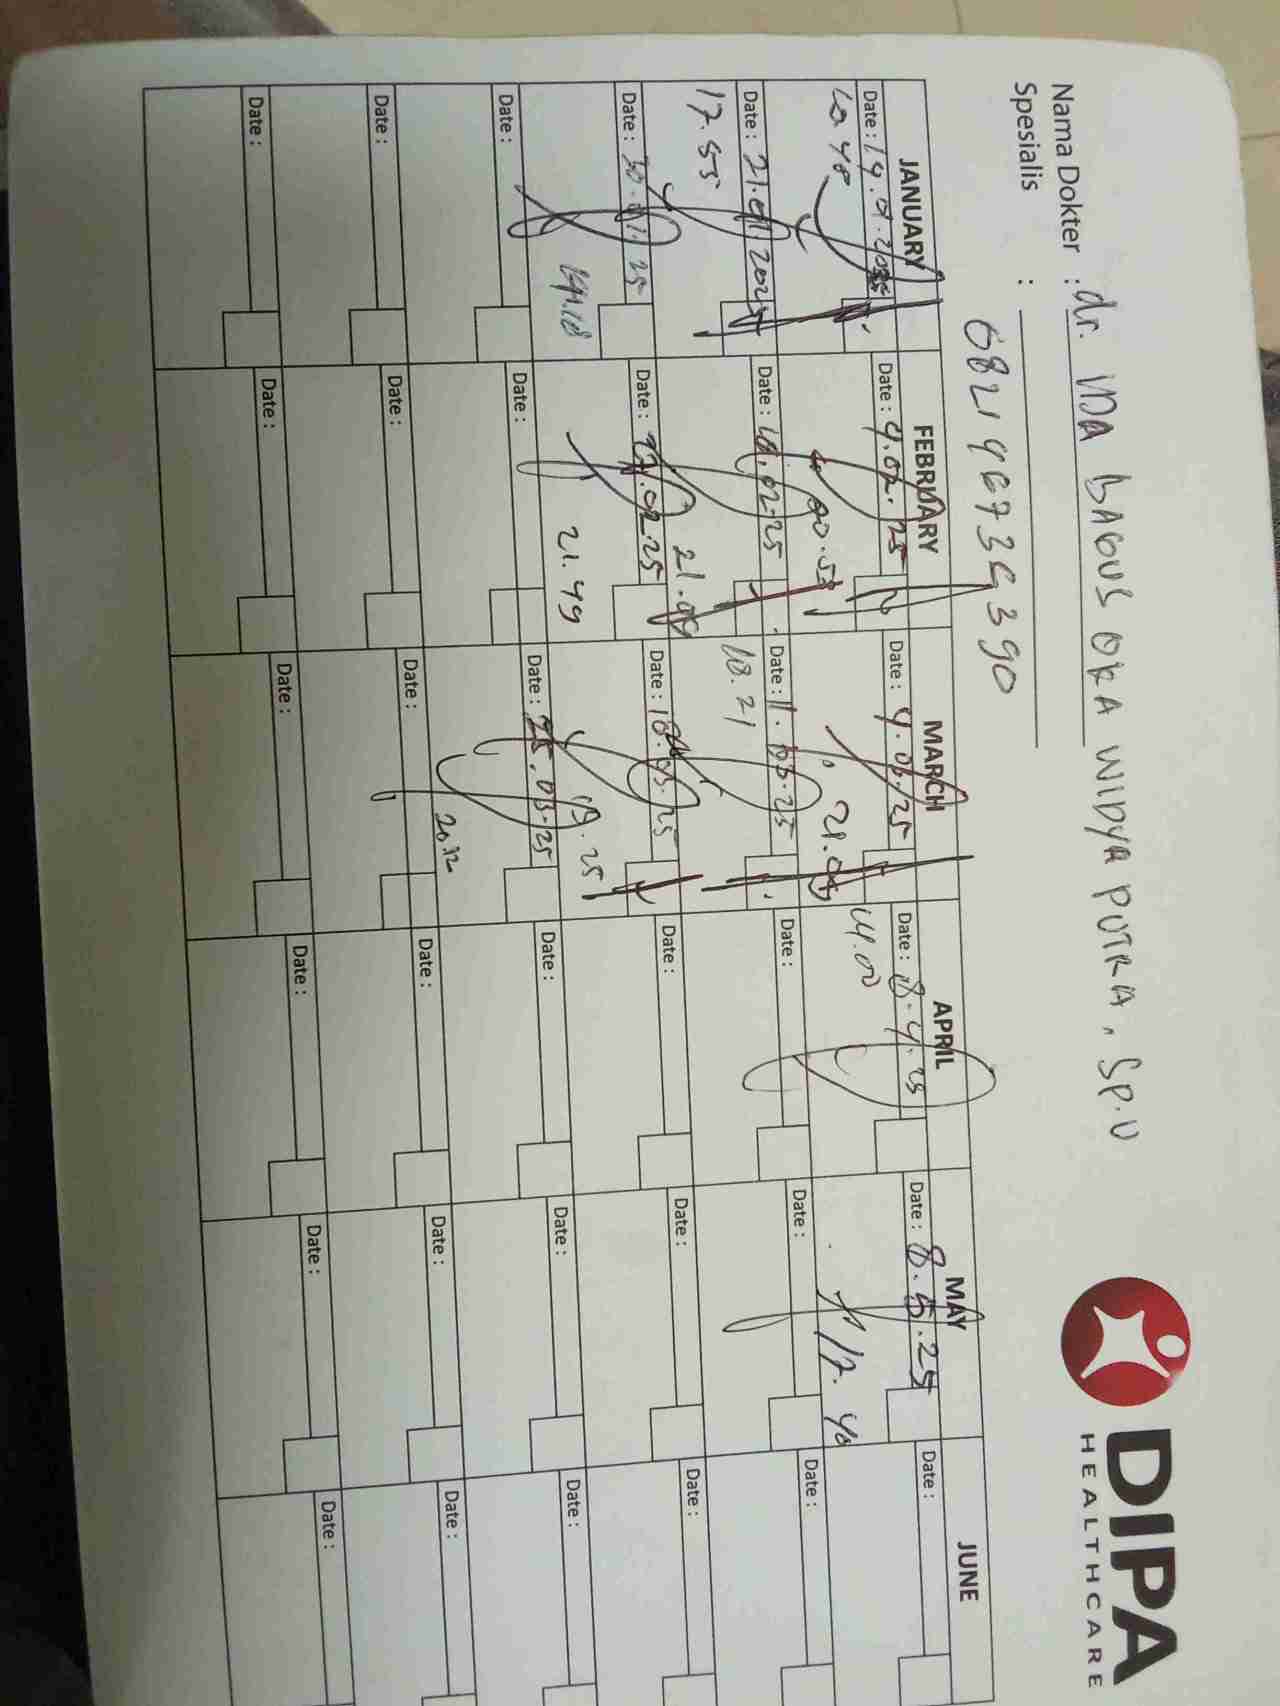 DIPA
HEALTHCARE
Nama Dokter : dr. IDA BAGUS OKA WIDYA PUTRA, SP.U
Spesialis :
JANUARY FEBRUARY MARCH APRIL MAY JUNE
Date : Date : 4.02.25 Date : 4.03.25 Date : 8.4.25 Date : 8.5.25 Date :
21.05 14.00 17.40
Date : 21.01.2025 Date : 18.02.25 Date : 11.03.25 Date : Date : Date :
17.55 18.21
Date : 30.01.25 Date : .02.25 Date : 18.03.25 Date : Date : Date :
21.49 19.25
Date : Date : Date : 25.03.25 Date : Date : Date :
20.12
Date : Date : Date : Date : Date : Date :
Date : Date : Date : Date : Date : Date :